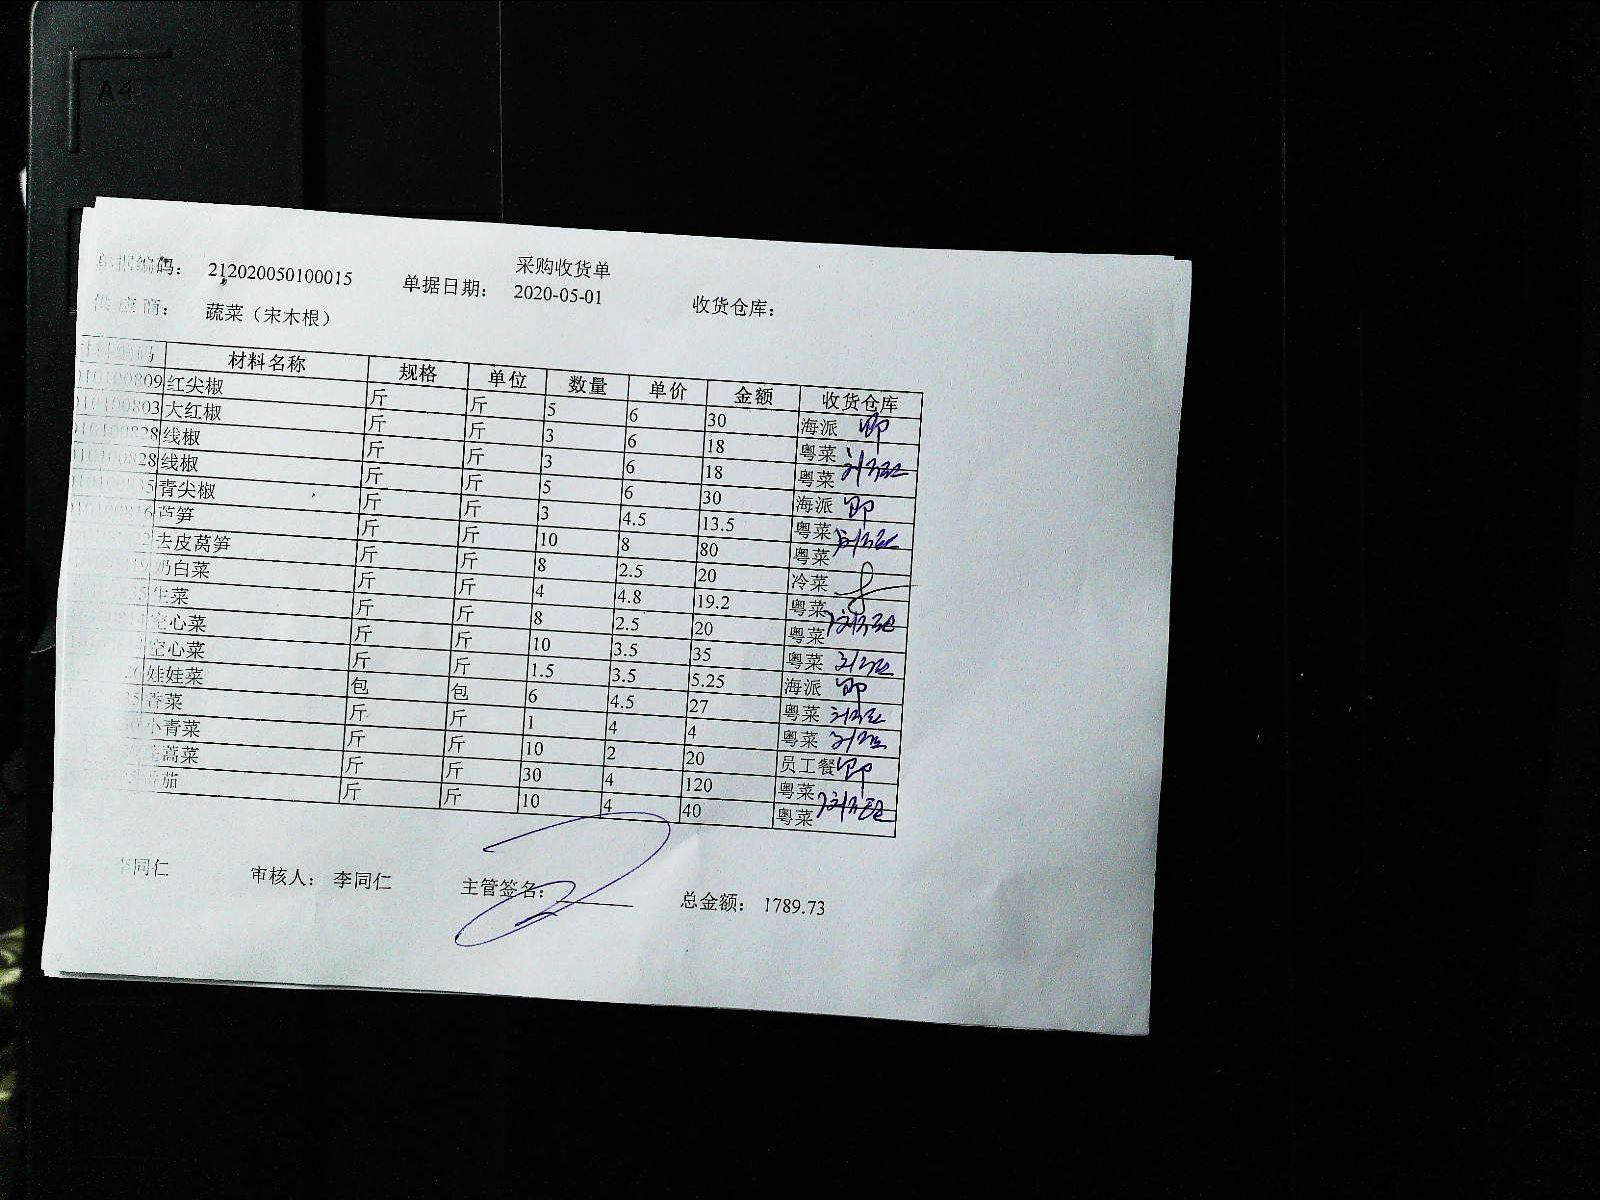 A4
采购收货单
单据编码： 212020050100015 单据日期： 2020-05-01 收货仓库：
供应商： 蔬菜（宋木根）
材料编码 材料名称 规格 单位 数量 单价 金额 收货仓库
010100809 红尖椒 斤 斤 5 6 30 海派
010100803 大红椒 斤 斤 3 6 18 粤菜
010100828 线椒 斤 斤 3 6 18 粤菜
010100828 线椒 斤 斤 5 6 30 海派
青尖椒 斤 斤 3 4.5 13.5 粤菜
芦笋 斤 斤 10 8 80 粤菜
去皮莴笋 斤 斤 8 2.5 20 冷菜
奶白菜 斤 斤 4 4.8 19.2 粤菜
生菜 斤 斤 8 2.5 20 粤菜
空心菜 斤 斤 10 3.5 35 粤菜
空心菜 斤 斤 1.5 3.5 5.25 海派
娃娃菜 包 包 6 4.5 27 粤菜
香菜 斤 斤 1 4 4 粤菜
小青菜 斤 斤 10 2 20 员工餐
蒿菜 斤 斤 30 4 120 粤菜
番茄 斤 斤 10 4 40 粤菜
李同仁 审核人： 李同仁 主管签名： 总金额： 1789.73